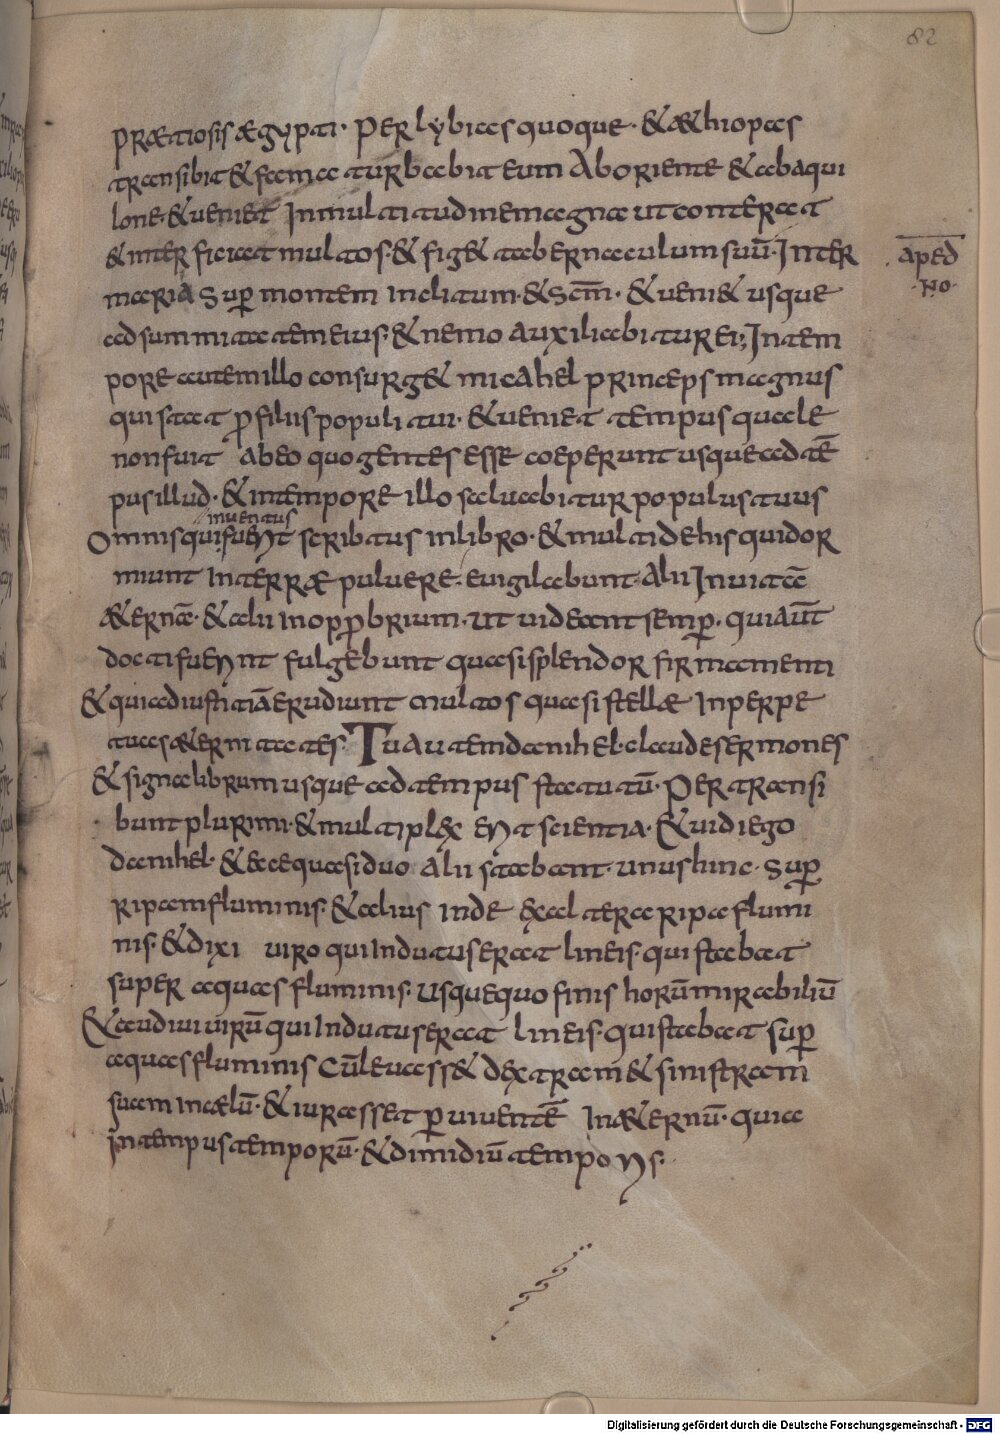 82
prætiosis ægypti· per lybias quoque· & æthiopas
transibit & fama turbabit eum Aboriente & abaqui
lone· & ueniet In multitudine magna ut conterat
& interficiat multos· & fig& tabernaculum suū· Inter
maria sup montem inclitum· & scm̄· & ueni& usque
ad summitatem eius· & nemo auxiliabitur ei; In tem
pore autem illo consurg& micahel princeps magnus
qui stat p filiis populi tui· & ueniet tempus quale
non fuit ab eo quo gentes esse coeperunt usque ad tē
pus illud· & in tempore illo saluabitur populus tuus
inuentus
omnis qui fuerit scribtus in libro· & multi de his qui dor
miunt In terræ puluere· euigilabunt· alii In uitā
æternā· & alii in opprobrium· ut uideant semp· qui aūt
docti fuerint fulgebunt quasi splendor firmamenti
& qui ad iustitiā erudiunt multos quasi stellæ In perpe
tuas æternitates· Tu autem danihel· claude sermones
& signa librum usque ad tempus statutū· Pertransi
bunt plurimi· & multiplex erit scientia· & uidi ego
danihel· & ecce quasi duo alii stabant· unus hinc· sup
ripam fluminis· & alius inde ex altera ripa flumi
nis· & dixi uiro qui Indutus erat lineis· qui stabat
super aquas fluminis· usquequo finis horū mirabiliū
& audiui uirū qui Indutus erat lineis· qui stabat sup
aquas fluminis cū leuass& dextram & sinistram
suam in cælū· & iurasset p uiuentē In æternū· quia
in tempus temporū· & dimidiū temporis·
aped
No
Digitalisierung gefördert durch die Deutsche Forschungsgemeinschaft - DFG